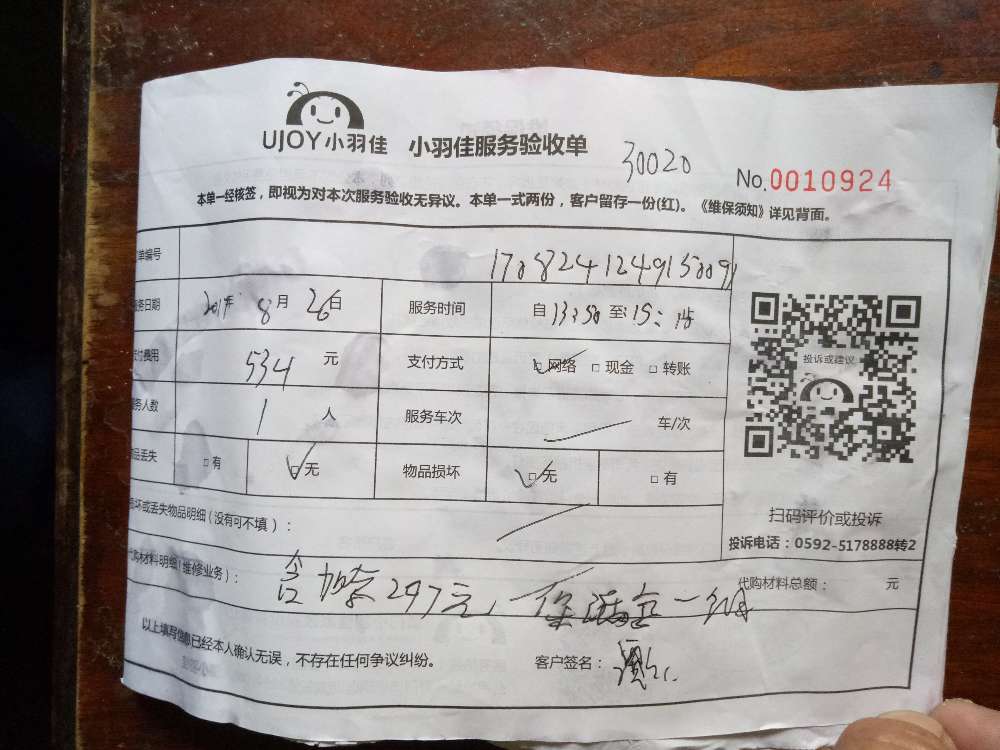 UJOY小羽佳 小羽佳服务验收单 30020
No.0010924
本单一经核签，即视为对本次服务验收无异议。本单一式两份，客户留存一份(红)。《维保须知》详见背面。
单编号 1708241249150091
务日期 2017年 8月 26日 服务时间 自13:50 至:15:15
付费用 534 元 支付方式 □网络 □现金 □转账
务人数 1 人 服务车次 车/次
品丢失 □有 □无 物品损坏 □无 □有
投诉或建议
坏或丢失物品明细(没有可不填)：
扫码评价或投诉
投诉电话：0592-5178888转2
代购材料明细(维修业务)： 含加 297元 代购材料总额： 元
以上填写信息已经本人确认无误，不存在任何争议纠纷。 客户签名：